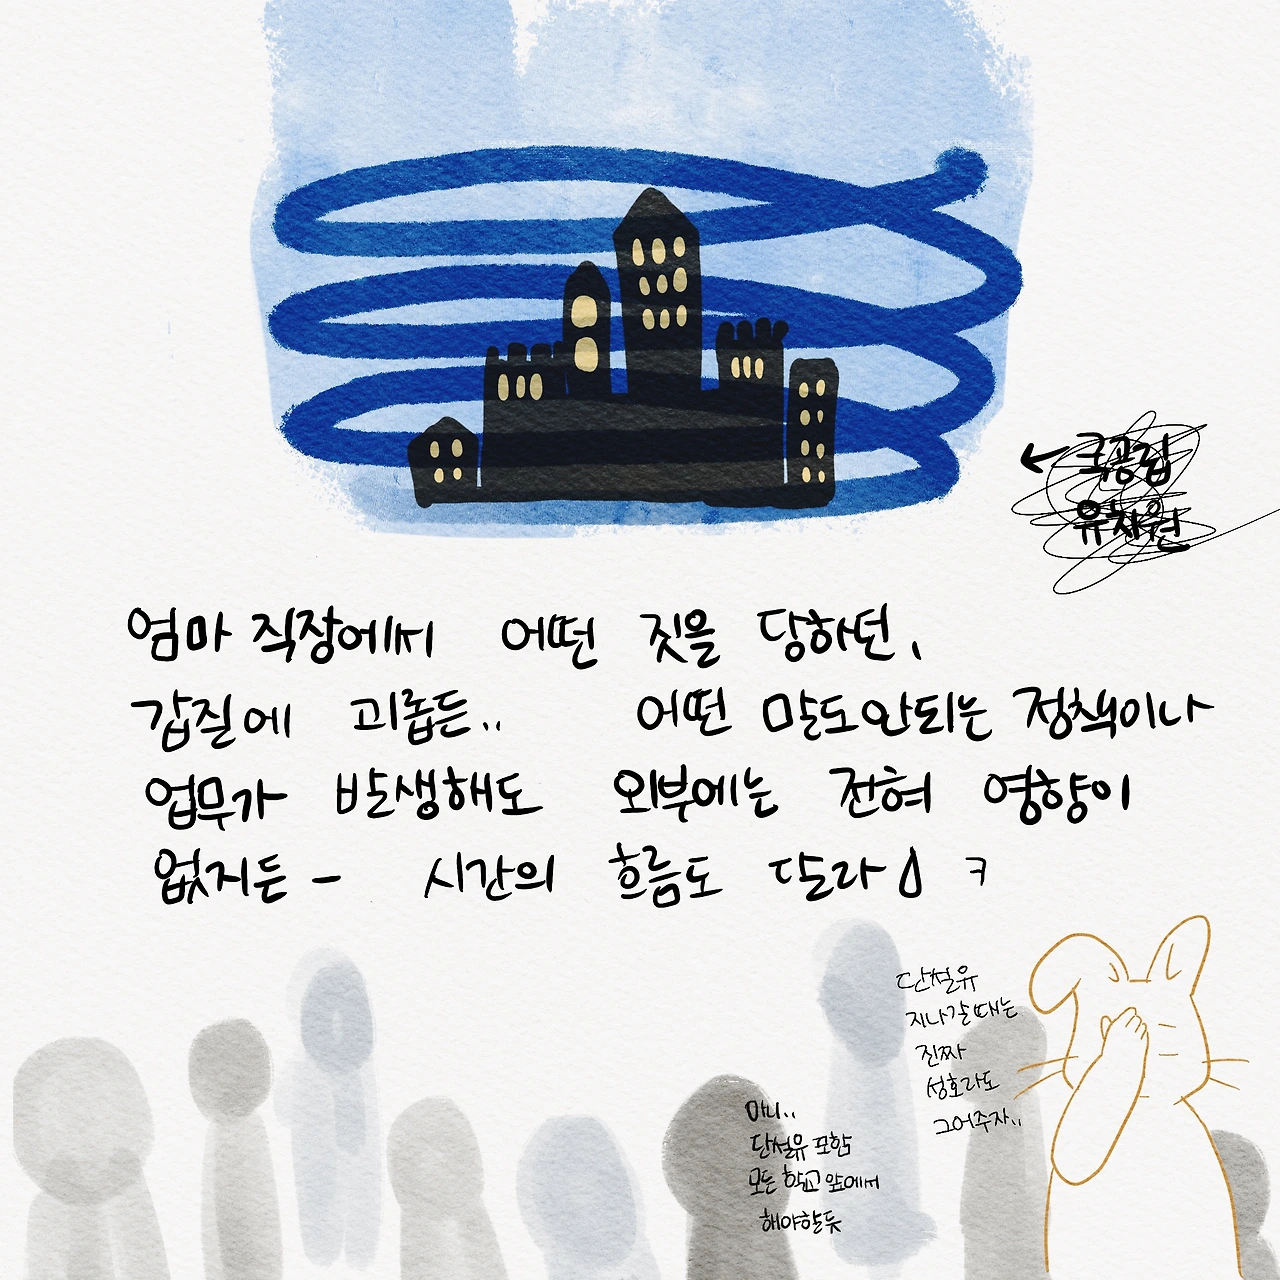 ← 국공립
유치원
엄마 직장에서 어떤 짓을 당하던,
갑질에 괴롭든.. 어떤 말도안되는 정책이나
업무가 발생해도 외부에는 전혀 영향이
없지든 - 시간의 흐름도 달라 ㅋ
단설유
지나갈때는
진짜
성호라도
그어주자..
아니..
단설유 포함
모든 학교 앞에서
해야할듯